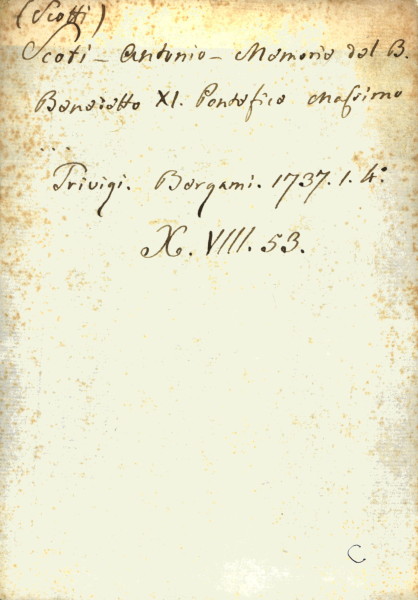 (Scotti)
Scoti - Antonio - Memorie del B.
Benedetto XI. Pontefice Massimo
...
Trivigi. Bergami. 1737. 1. 4:
X. VIII. 53.
C